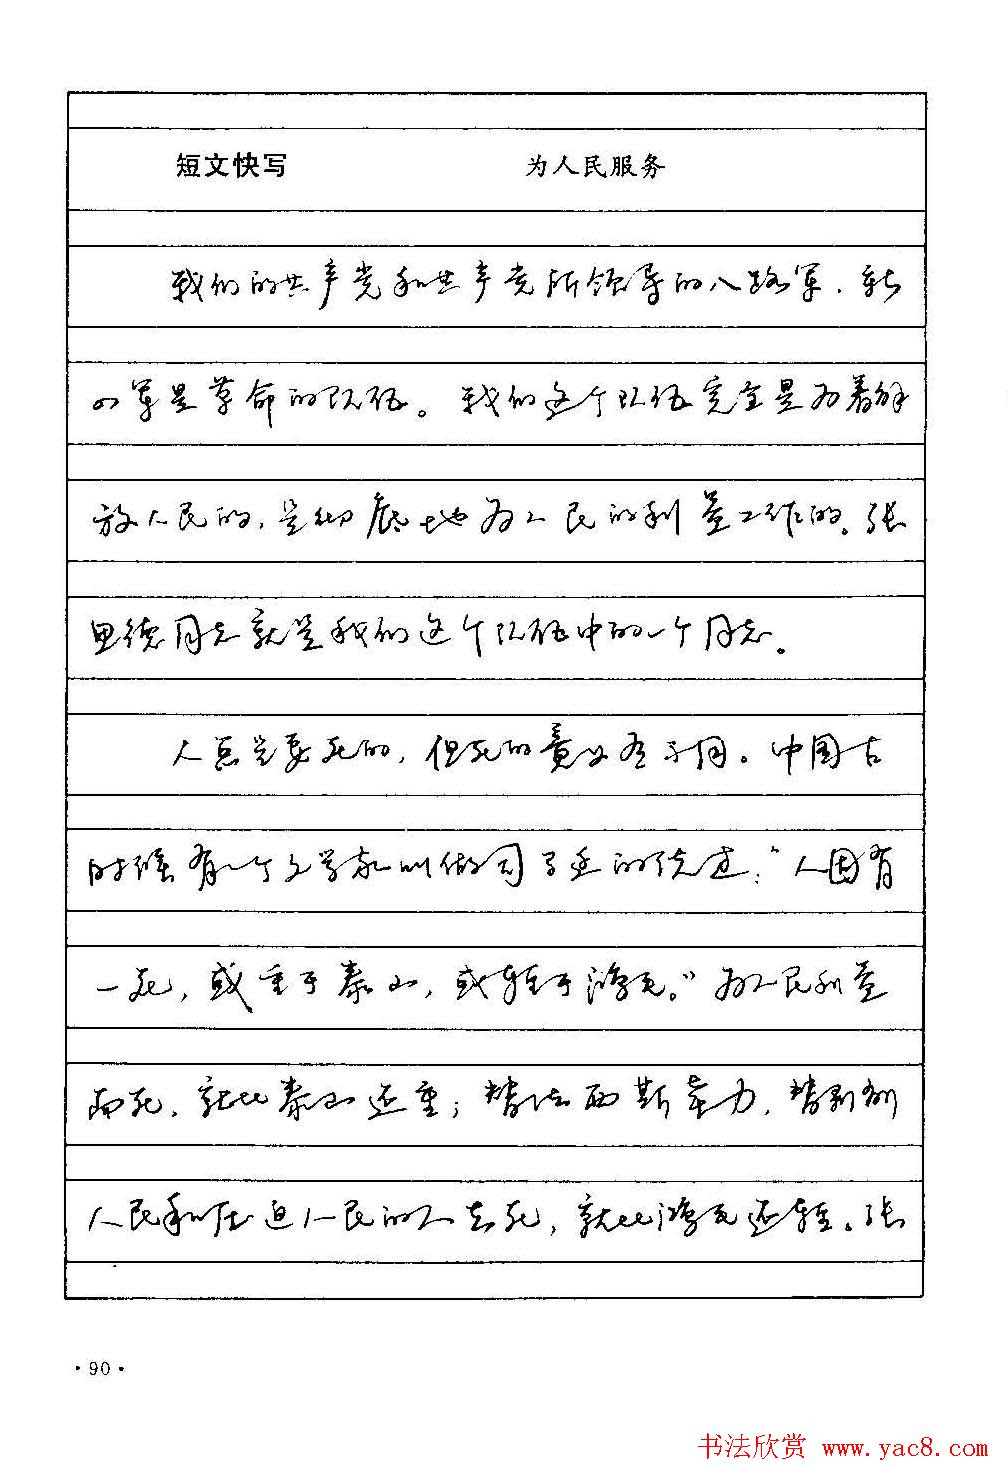 短文快写 为人民服务
我们的共产党和共产党所领导的八路军、新
四军是革命的队伍。我们这个队伍完全是为着解
放人民的，是彻底地为人民的利益工作的。张
思德同志就是我们这个队伍中的一个同志。
人总是要死的，但死的意义有不同。中国古
时候有一个文学家叫做司马迁的说过：“人固有
一死，或重于泰山，或轻于鸿毛。”为人民利益
而死，就比泰山还重；替法西斯卖力，替剥削
人民和压迫人民的人去死，就比鸿毛还轻。张
·90·
书法欣赏 www.yac8.com